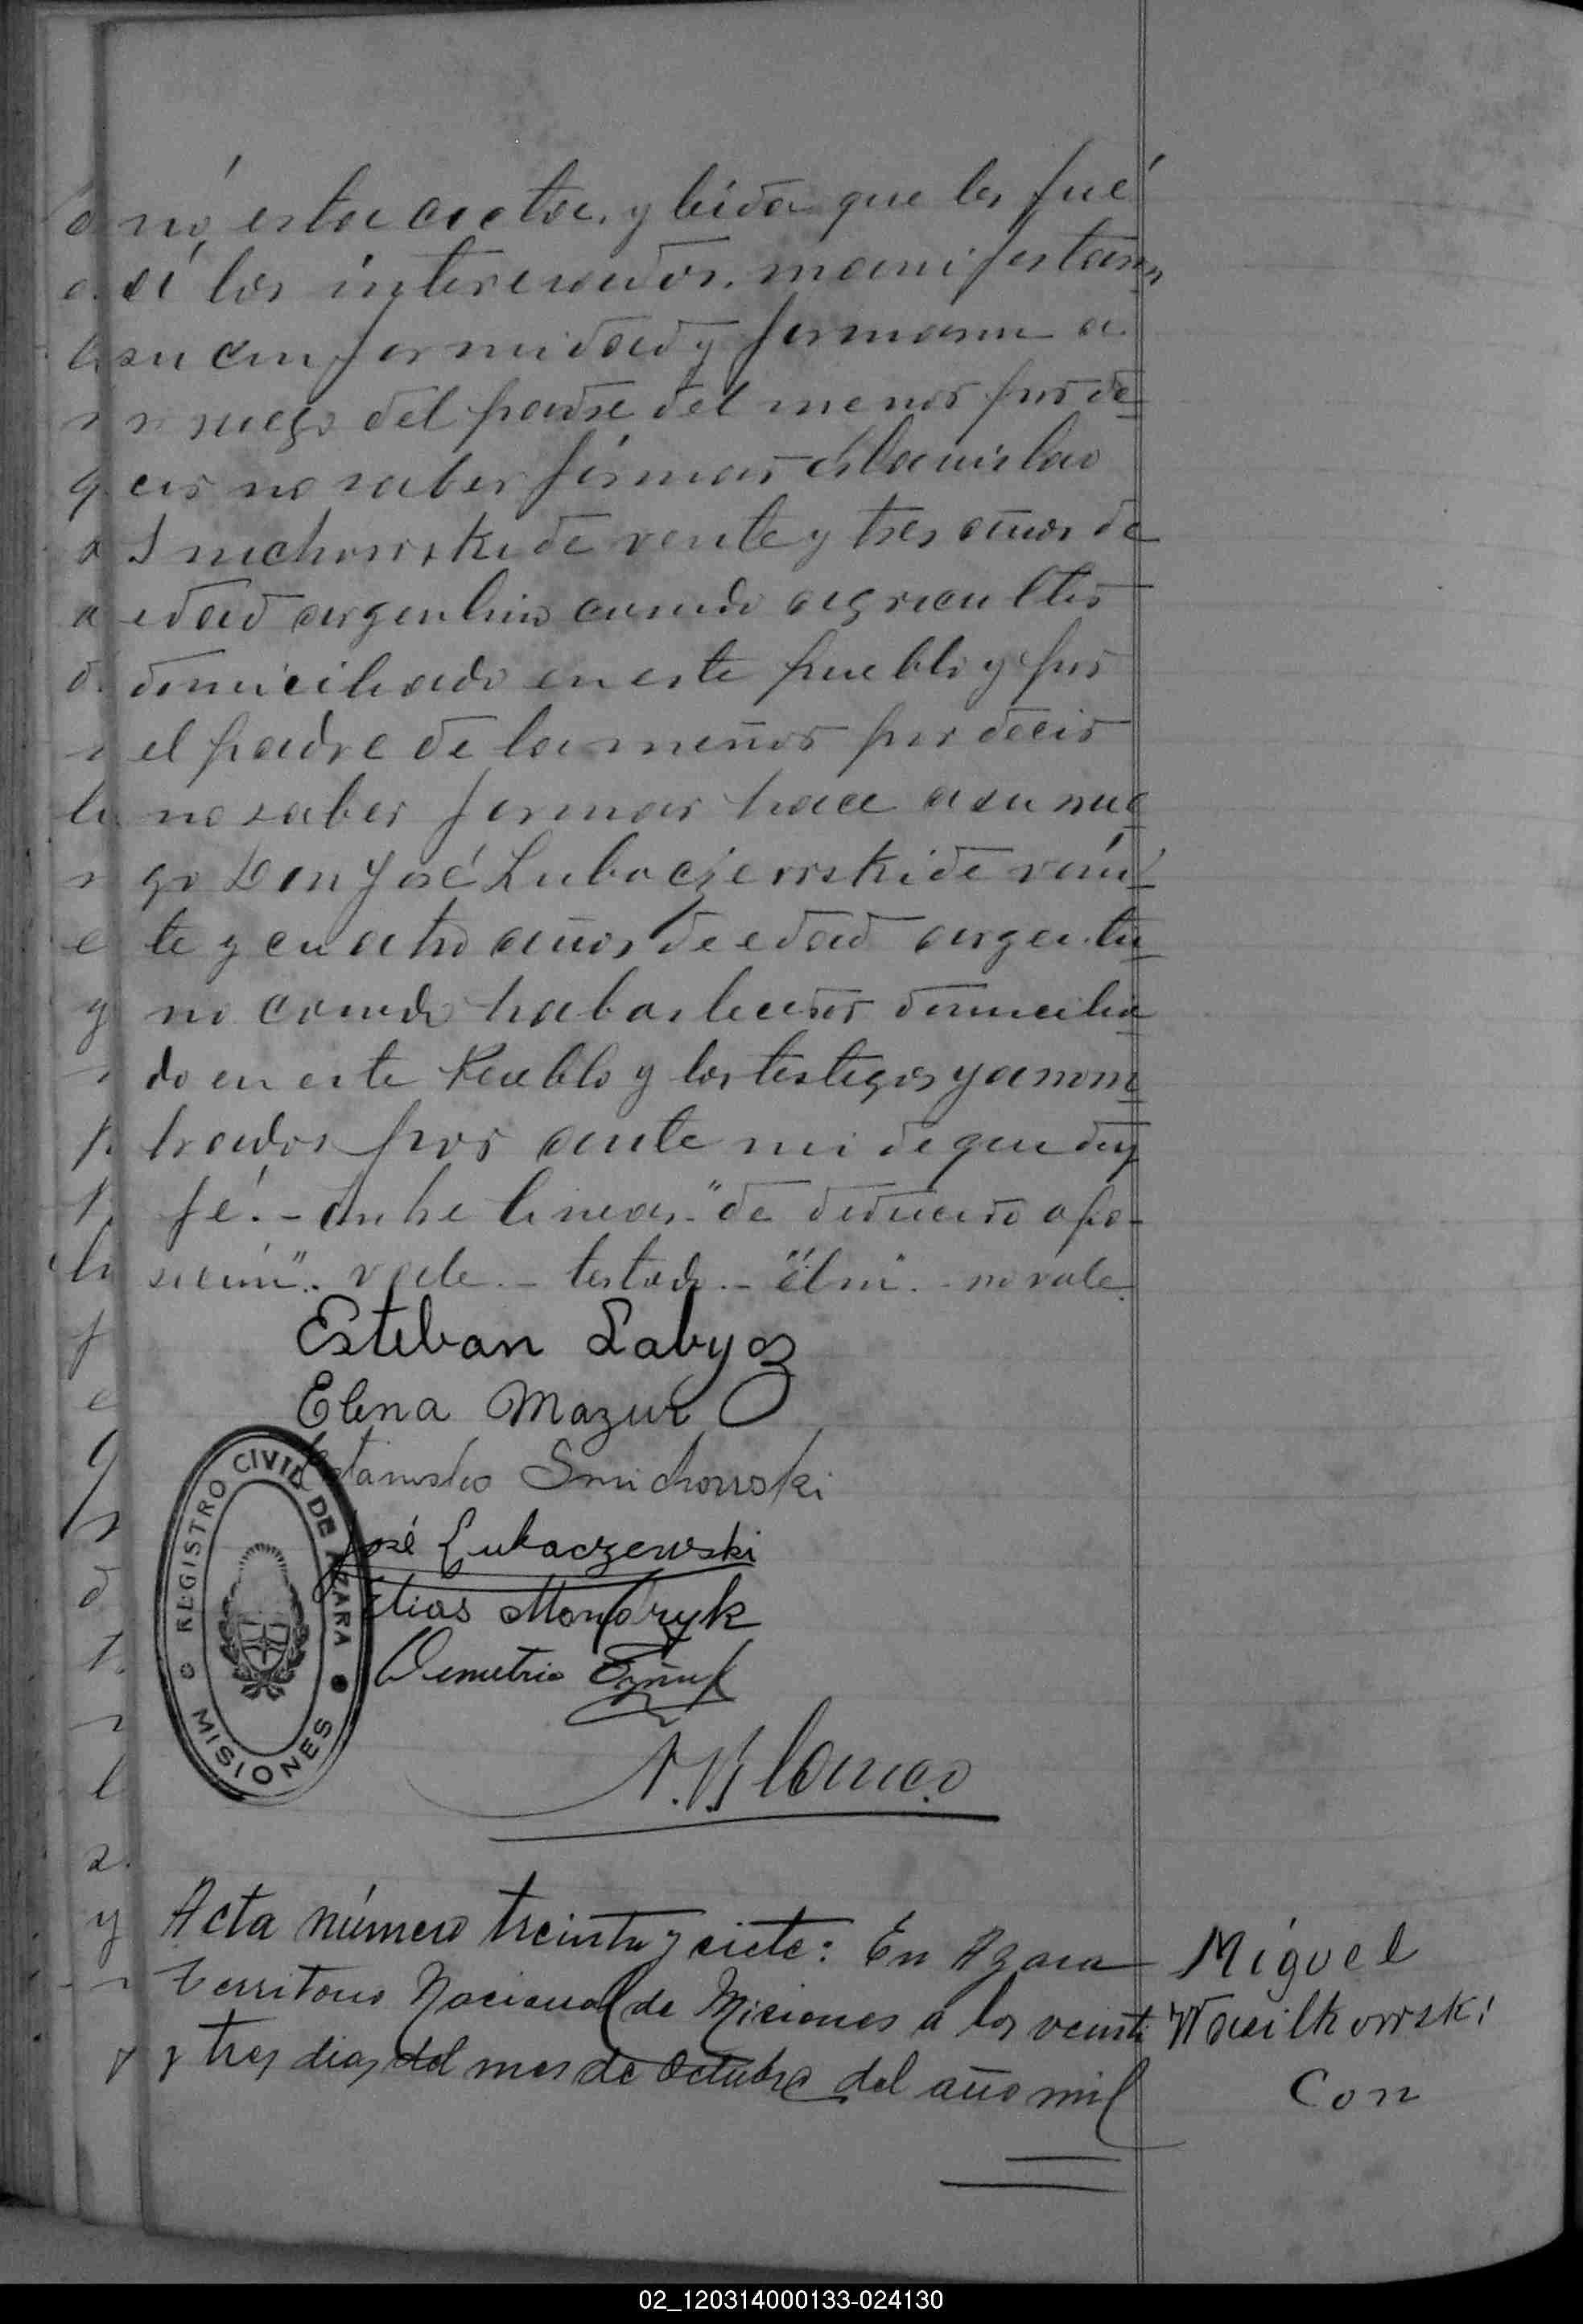 nó, esta acta, y leida que les fué
á los interesados, manifestaron
su conformidad y firmaron a
ruego del padre del menor por de
cir no saber firmar Estanislao
Smichowski de vente y tres años de
edad argentino casado agricultor
domiciliado en este pueblo y por
el padre de la menor por decir
no saber firmar hace a su rue
go Don José Lubaczewski de vein
te y cuatro años de edad argenti
no casado domicilia
do en este Pueblo y los testigos ya nom
brados por ante mi de que doy
fé. - Entre lineas - "de deducido opo-
sicion". vale. - testado. - no vale.
Esteban Labyoz
Elena Mazur
Estanislao Smichowski
José Lukaczewski
Elias Mondryk
Demetrio
REGISTRO CIVIL DE AZARA
MISIONES
Acta número treinta y siete: En Azara
territorio Nacional de Misiones a los veinti
y tres dias del mes de Octubre del año mil
Miguel
Wasilkowski
Con
02_120314000133-024130